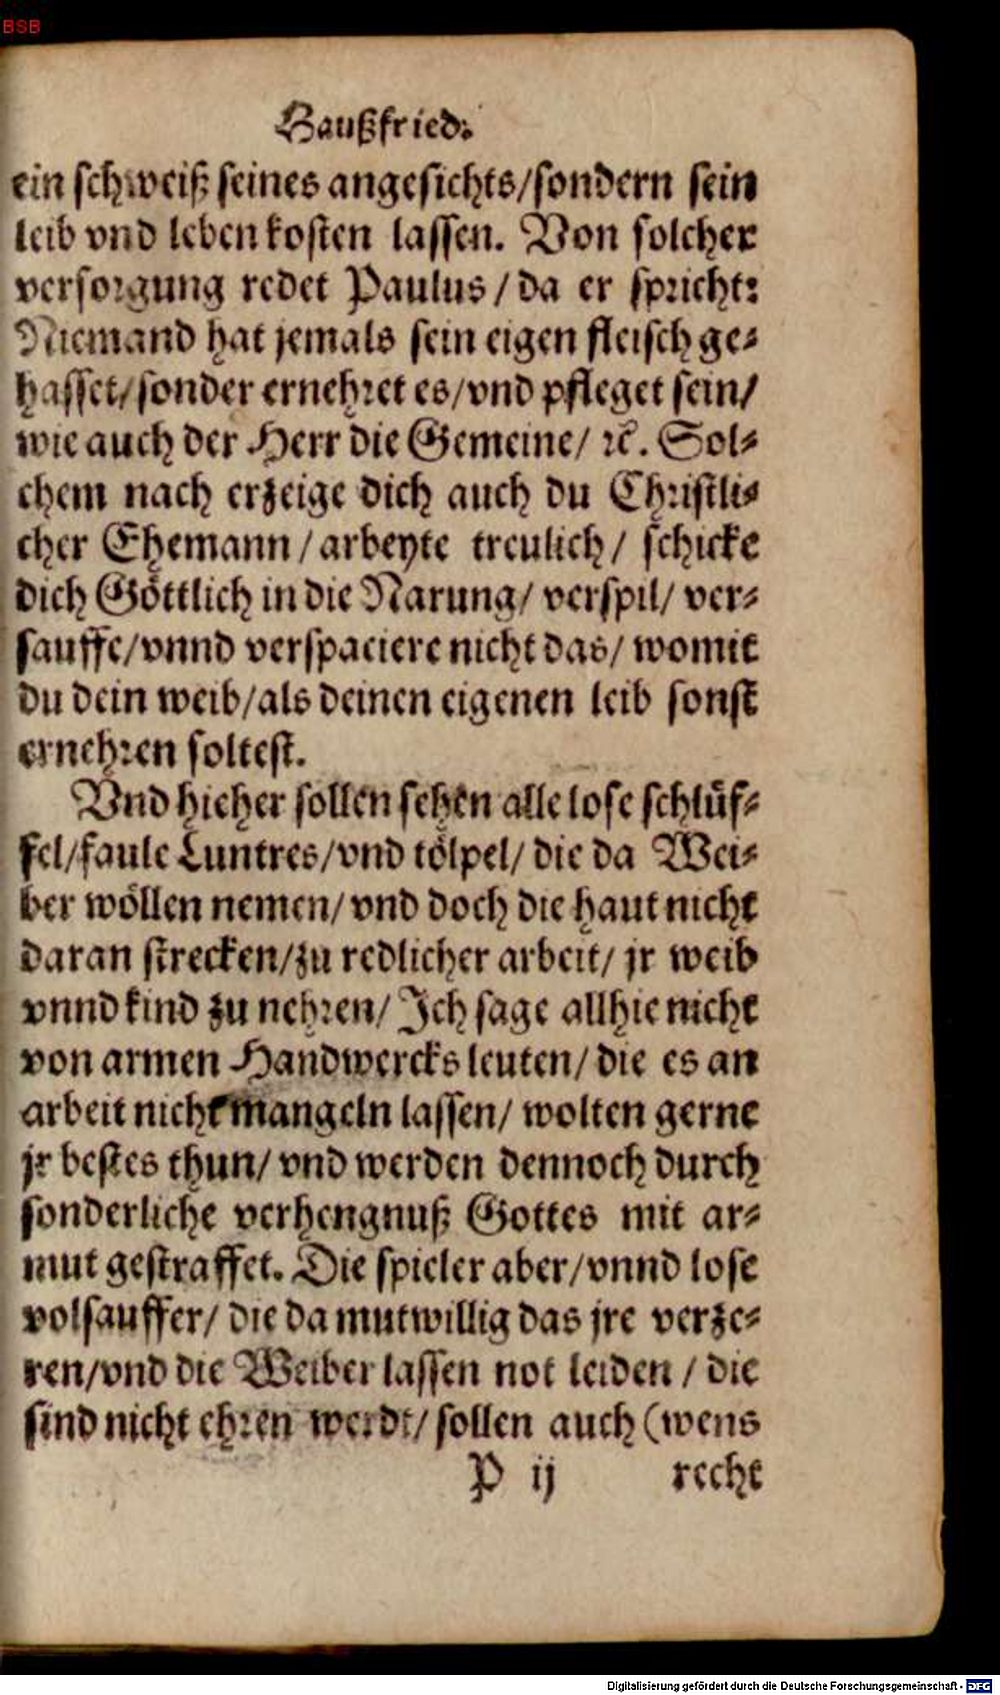 BSB
Haußfried.
ein schweiß seines angesichts/sondern sein
leib vnd leben kosten lassen. Von solcher
versorgung redet Paulus/da er spricht:
Niemand hat jemals sein eigen fleisch ge⸗
hasset/sonder ernehret es/vnd pfleget sein/
wie auch der Herr die Gemeine/ ꝛc̃. Sol⸗
chem nach erzeige dich auch du Christli⸗
cher Ehemann/arbeyte treulich/ schicke
dich Göttlich in die Narung/ verspil/ ver⸗
sauffe/vnnd verspaciere nicht das/ womit
du dein weib/als deinen eigenen leib sonst
ernehren soltest.
Vnd hieher sollen sehen alle lose schlüf⸗
fel/faule Luntres/vnd tölpel/ die da Wei⸗
ber wöllen nemen/vnd doch die haut nicht
daran strecken/zu redlicher arbeit/ jr weib
vnnd kind zu nehren/ Ich sage allhie nicht
von armen Handwercks leuten/ die es an
arbeit nicht mangeln lassen/ wolten gerne
jr bestes thun/ vnd werden dennoch durch
sonderliche verhengnuß Gottes mit ar⸗
mut gestraffet. Die spieler aber/vnnd lose
volsauffer/ die da mutwillig das jre verze⸗
ren/vnd die Weiber lassen not leiden / die
sind nicht ehren werdt/ sollen auch (wens
P ij recht
Digitalisierung gefördert durch die Deutsche Forschungsgemeinschaft - DFG